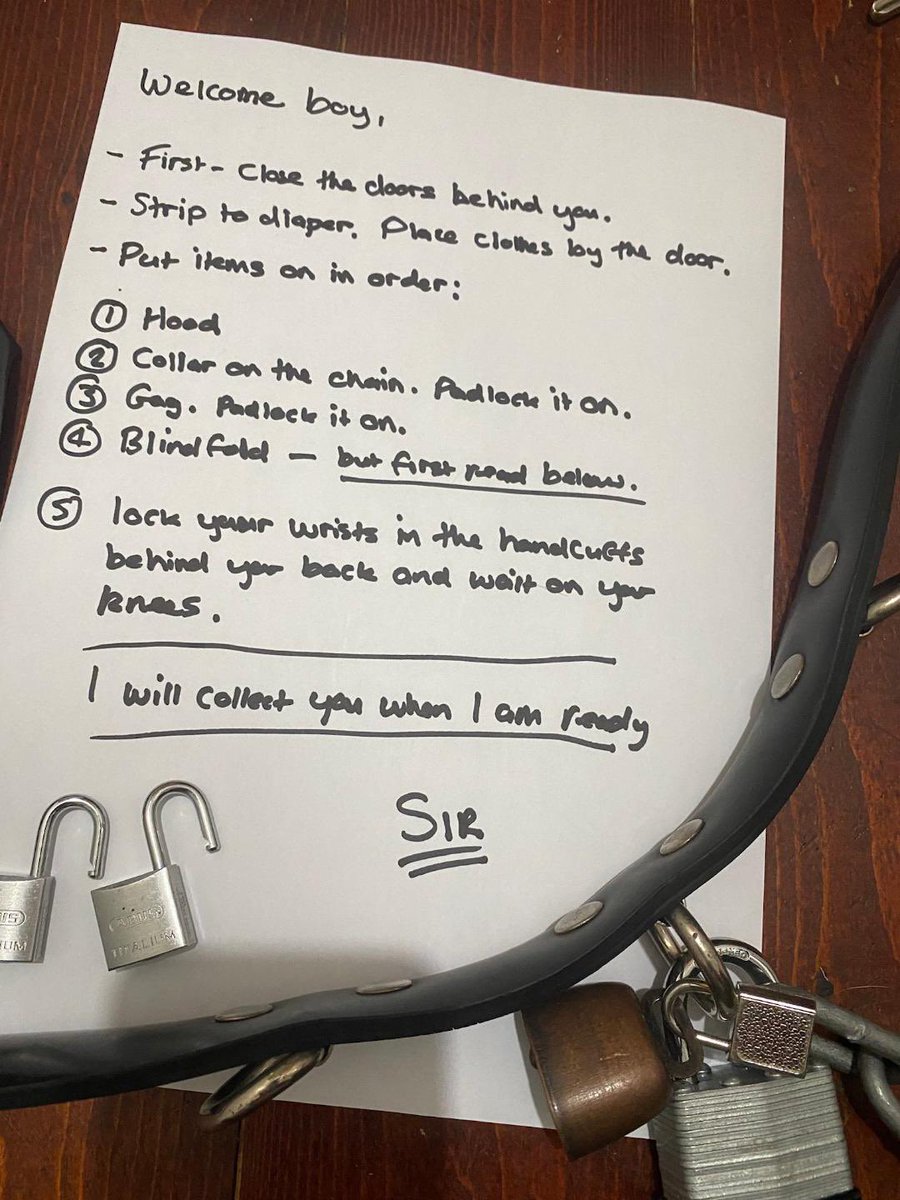 Welcome boy,
- First - Close the doors behind you.
- Strip to diaper. Place clothes by the door.
- Put items on in order:
① Hood
② Collar on the chain. Padlock it on.
③ Gag. Padlock it on.
④ Blindfold - but first read below.
⑤ lock your wrists in the handcuffs
behind your back and wait on your
knees.
I will collect you when I am ready
SIR
ABUS
TITALIUM